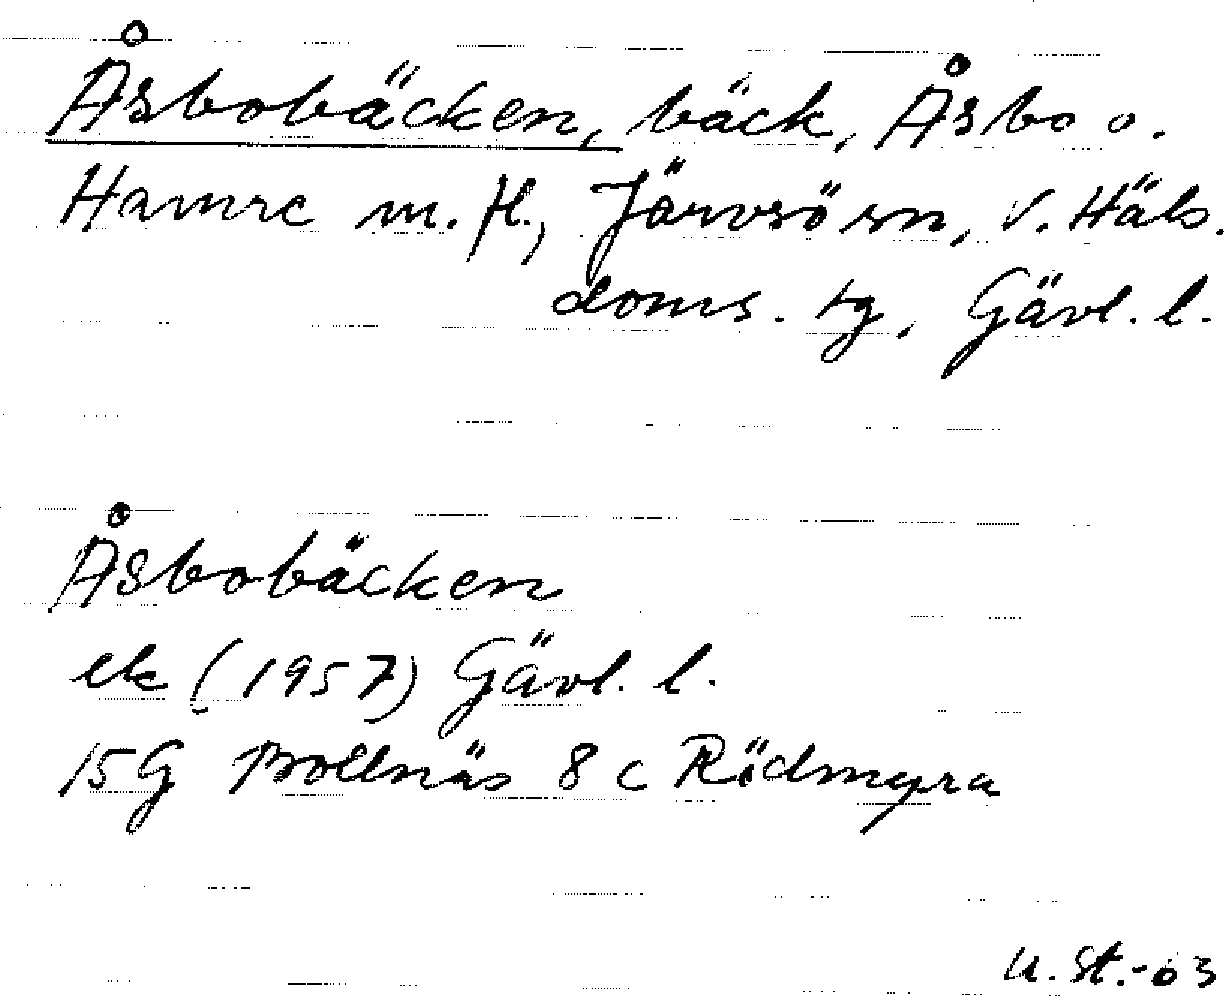 Åsbobäcken, bäck, Åsbo o.
Hamre m. fl., Järvsö sn, V. Häls.
doms. tg, Gävl. l.
Åsbobäcken
ek (1957) Gävl. l.
15G Bollnäs 8 c Rödmyra
U. St.-63